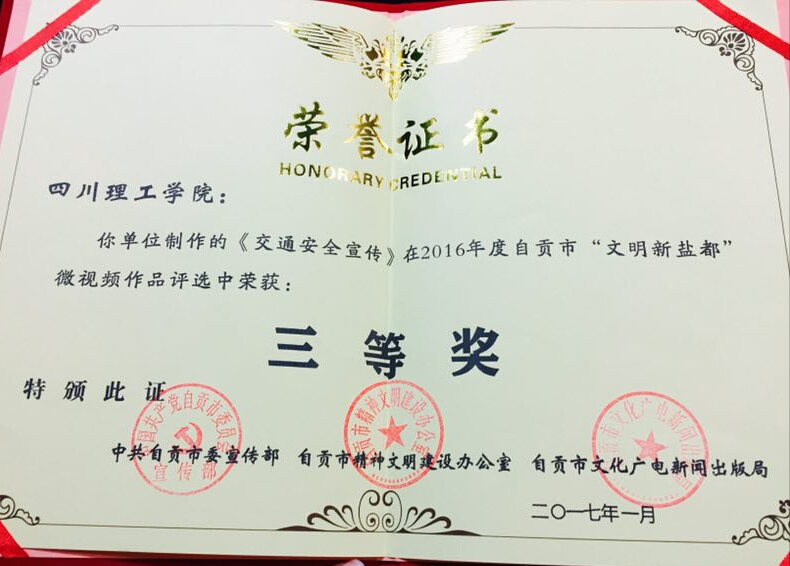 荣誉证书
HONORARY CREDENTIAL
四川理工学院：
你单位制作的《交通安全宣传》在2016年度自贡市“文明新盐都”
微视频作品评选中荣获：
三等奖
特颁此证
中国共产党自贡市委员会
宣传部
自贡市精神文明建设办公室
自贡市文化广电新闻出版局
中共自贡市委宣传部 自贡市精神文明建设办公室 自贡市文化广电新闻出版局
二〇一七年一月